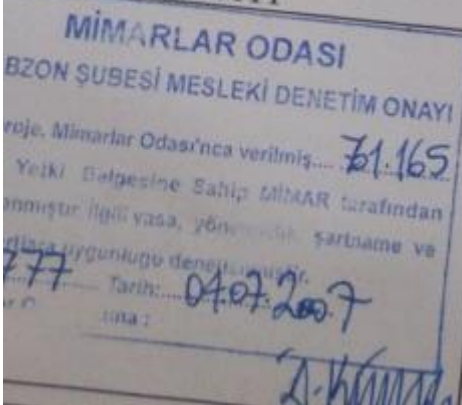 MİMARLAR ODASI
BZON ŞUBESİ MESLEKİ DENETİM ONAYI
roje, Mimarlar Odası'nca verilmiş.... 61.165
Yetki Belgesine Sahip MİMAR tarafından
anmıştır ilgili yasa, yönetmelik, şartname ve
uygunluğu denetlenmiştir.
777 Tarih:....04.07.2007